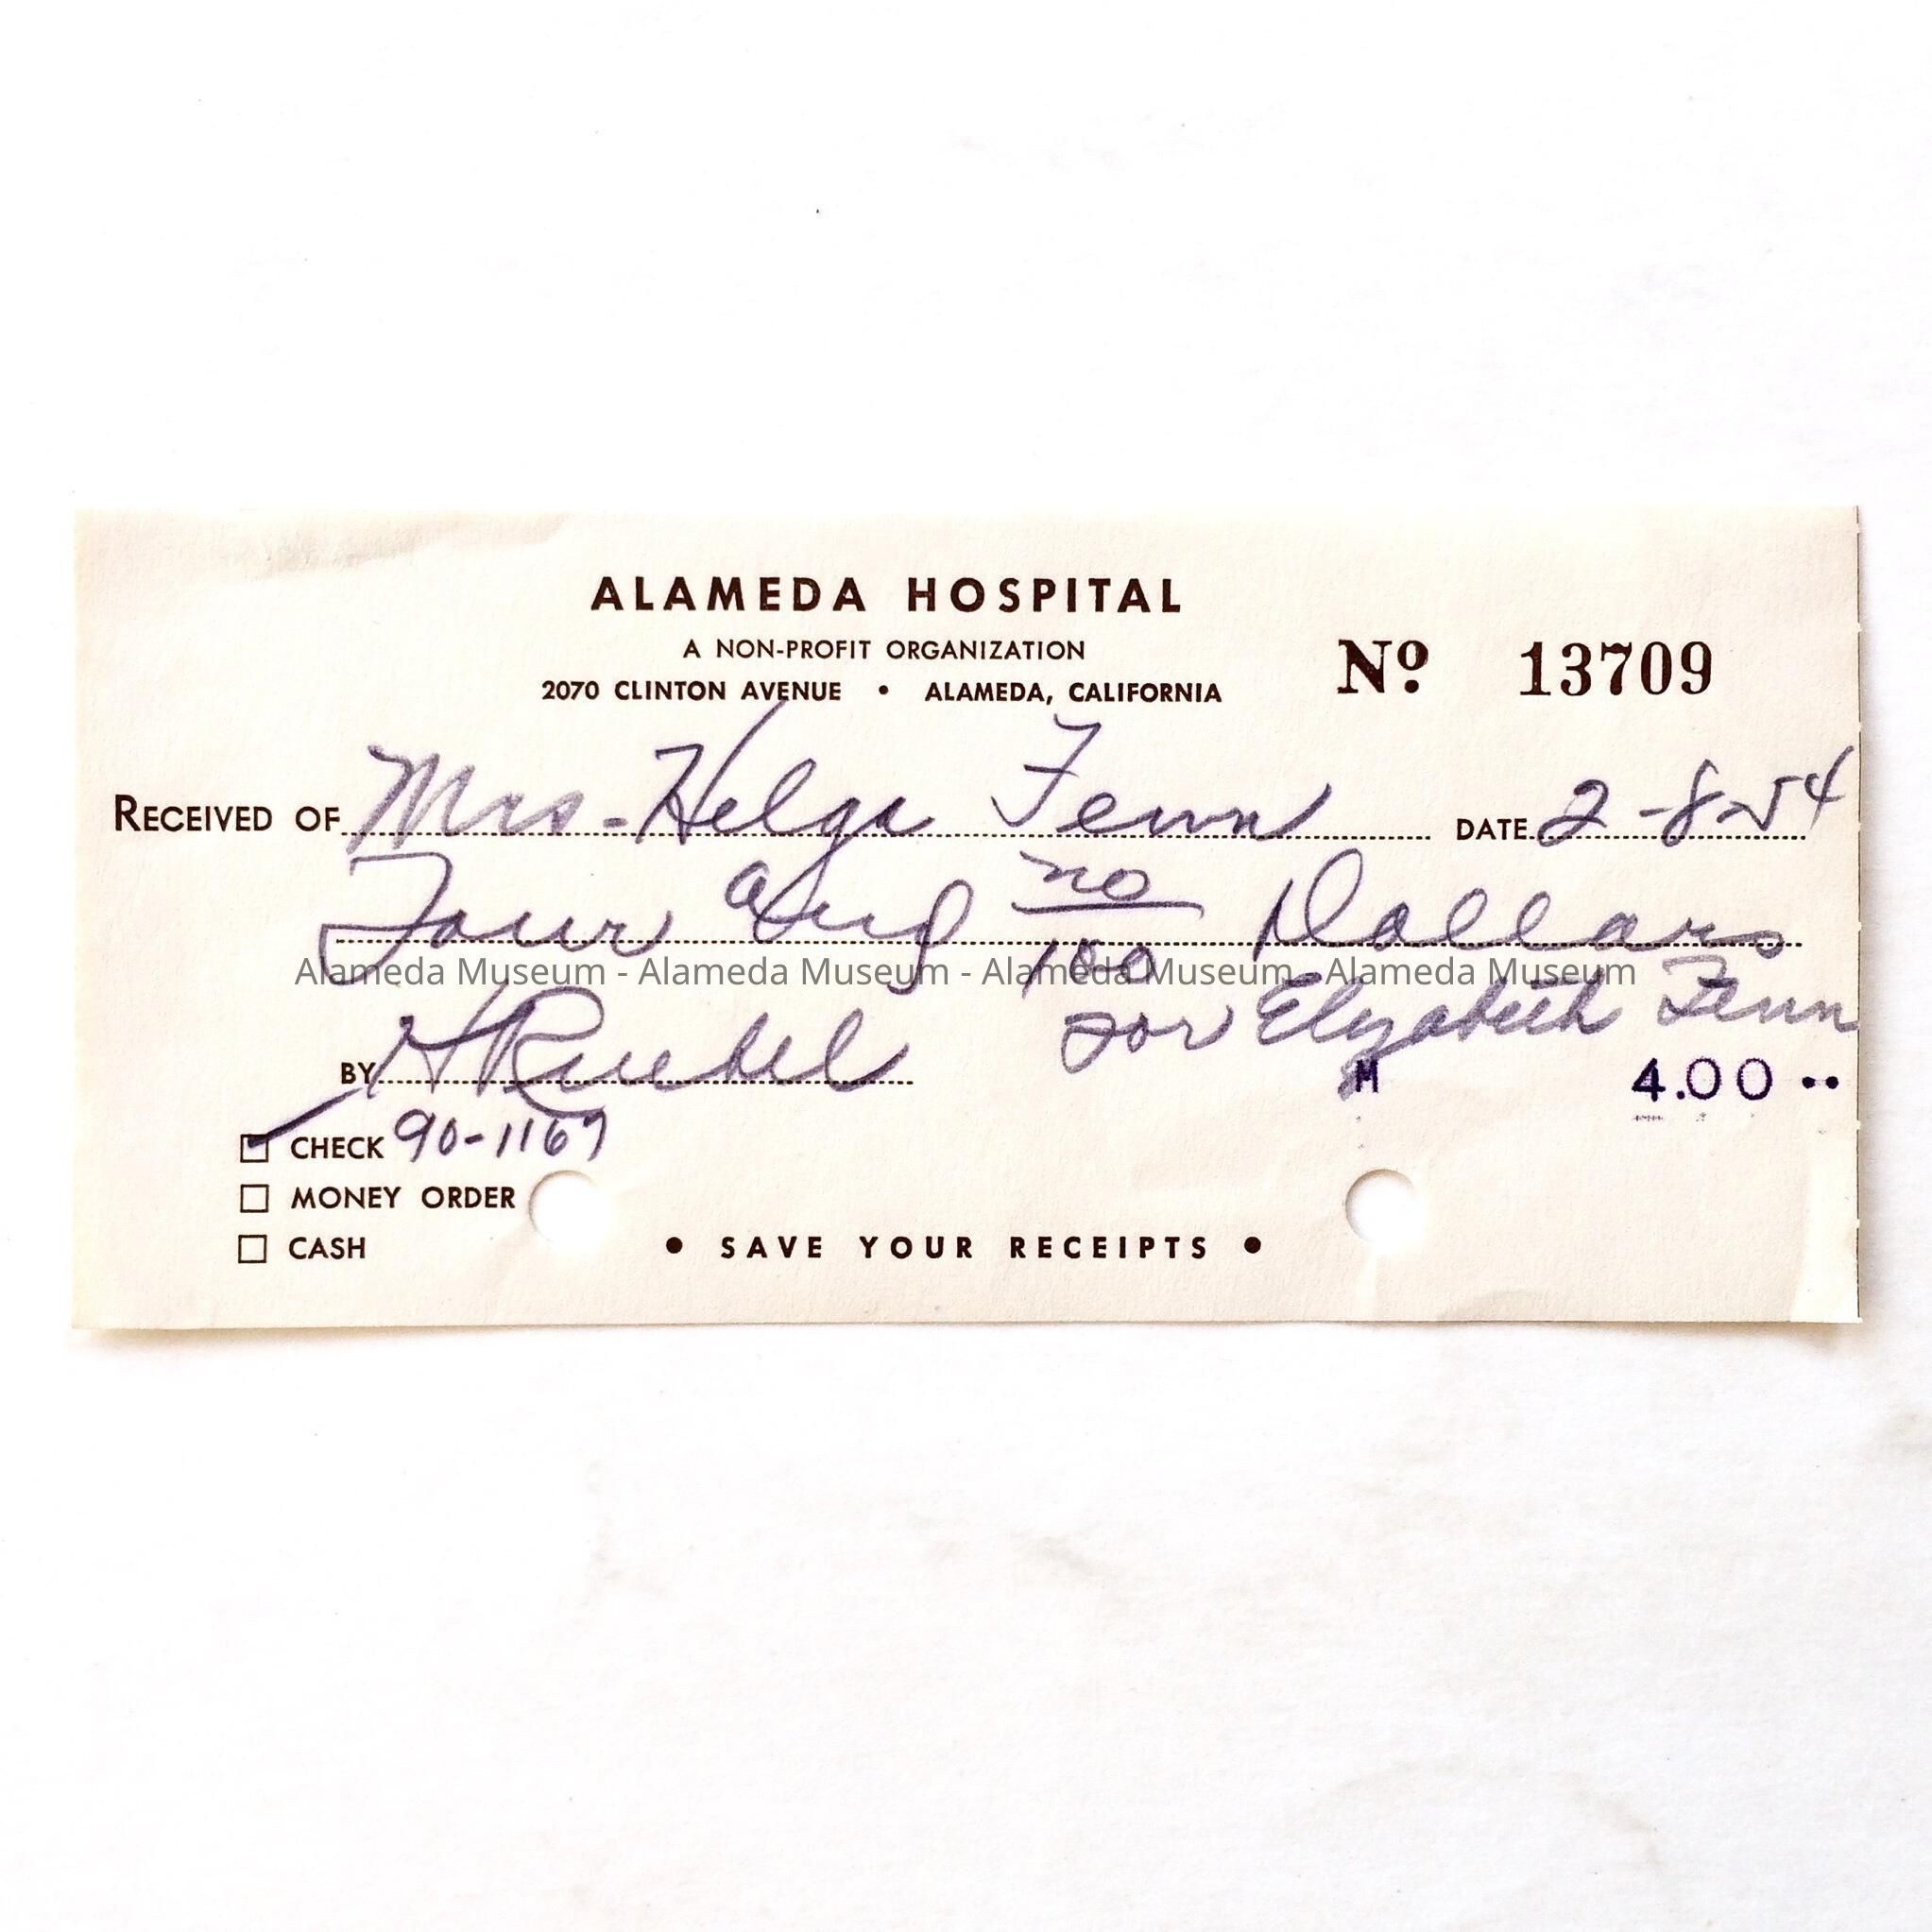 ALAMEDA HOSPITAL
A NON-PROFIT ORGANIZATION
2070 CLINTON AVENUE • ALAMEDA, CALIFORNIA
Nº 13709
RECEIVED OF Mrs. Helga Fenn DATE 2-8-54
Four and no/100 Dollars
Alameda Museum - Alameda Museum - Alameda Museum - Alameda Museum
for Elizabeth Fenn
BY H
M 4.00 ••
CHECK 90-1167
MONEY ORDER
CASH
• SAVE YOUR RECEIPTS •